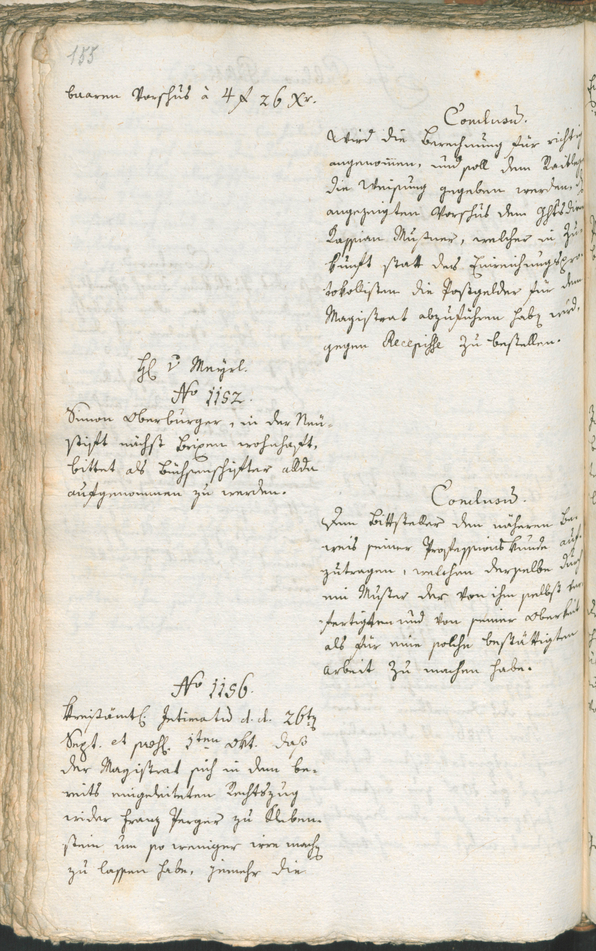 155
baaren Vorschus à 4 f 26 Xr.
Conclusū.
Wird die Berechnung für richtig
angenom̅en, und soll dem
die Weisung gegeben werden,
angezeigten Vorschus dem
Kassian Mustner, welcher in Zu-
kunft statt des Einreichungspro-
tokollisten die Postgelder für den
Magistrat abzuführen haben wird,
gegen Recepisse zu bestellen.
H v Mayrl.
No 1152.
Simon Oberburger, in der Neu-
stift nächst Brixen wohnhaft,
bittet als Büchsenschifter allda
aufgenommen zu werden.
Conclusū.
Dem Bittsteller den näheren Be-
weis seiner Professions Kunde auf-
zutragen, welchen derselbe durch
ein Muster der von ihm selbst ver-
fertigten und von seiner Oberkeit
als für eine solche bestättigten
Arbeit zu machen habe.
No 1156.
Kreisämtl. Intimatū d. d. 26ten
Sept. et præs. 5ten Okt. daß
der Magistrat sich in dem be-
reits eingeleiteten Rechtszug
wider Franz Perger zu Kleben-
stein um so weniger irre machen
zu lassen habe, jemehr die